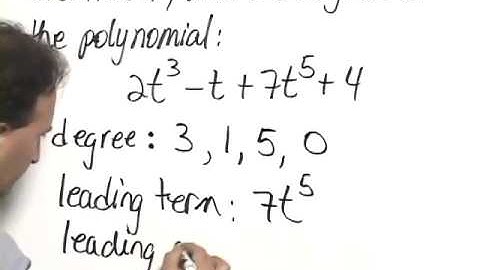 the polynomial:
2t³ - t + 7t⁵ + 4
degree: 3, 1, 5, 0
leading term: 7t⁵
leading